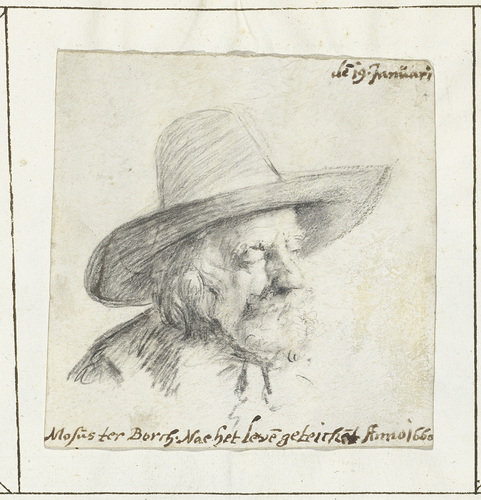 dē 19. Januari
Mosus ter Borch. Nae het levē geteickēt Anno 1660